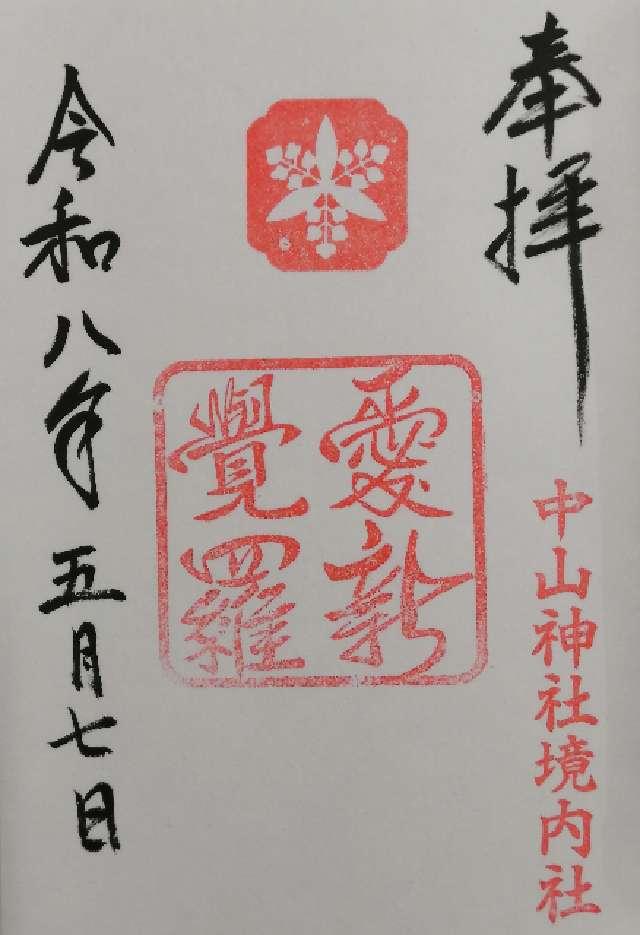 奉拝
中山神社境内社
愛新
覺羅
令和八年五月七日